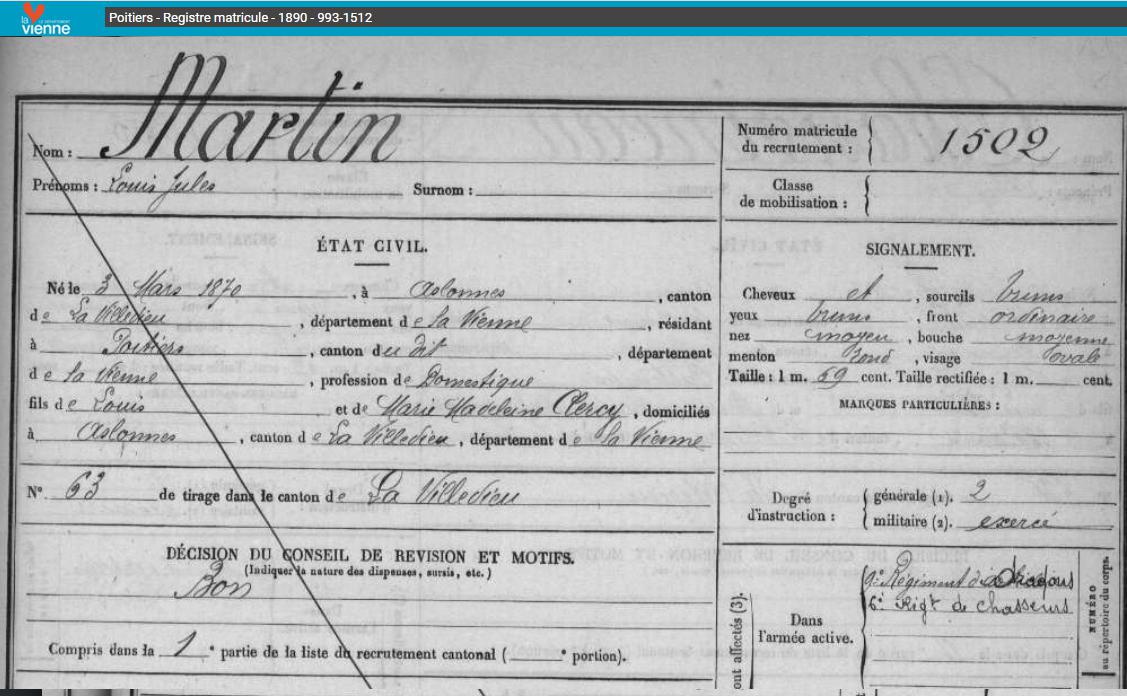 la vienne
Poitiers - Registre matricule - 1890 - 993-1512
Martin
Nom :
Prénoms : Louis Jules Surnom :
Numéro matricule du recrutement : 1502
Classe de mobilisation :
ÉTAT CIVIL.
Né le 3 Mars 1870, à Aslonnes, canton
de La Villedieu, département de la Vienne, résidant
à Poitiers, canton du dit, département
de la Vienne, profession de Domestique
fils de Louis et de Marie Madeleine Clercy, domiciliés
à Aslonnes, canton de La Villedieu, département de la Vienne
N° 63 de tirage dans le canton de La Villedieu
DÉCISION DU CONSEIL DE REVISION ET MOTIFS.
(Indiquer la nature des dispenses, sursis, etc.)
Bon
Compris dans la 1e partie de la liste du recrutement cantonal ( e portion).
SIGNALEMENT.
Cheveux et, sourcils bruns
yeux bruns, front ordinaire
nez moyen, bouche moyenne
menton rond, visage ovale
Taille : 1 m. 69 cent. Taille rectifiée : 1 m. cent.
MARQUES PARTICULIÈRES :
Degré d'instruction :
générale (1). 2
militaire (2). exercé
Dans l'armée active.
Régiment de Dragons
6e Rigt de chasseurs
NUMÉRO
au répertoire du corps.
ont affectés (3).